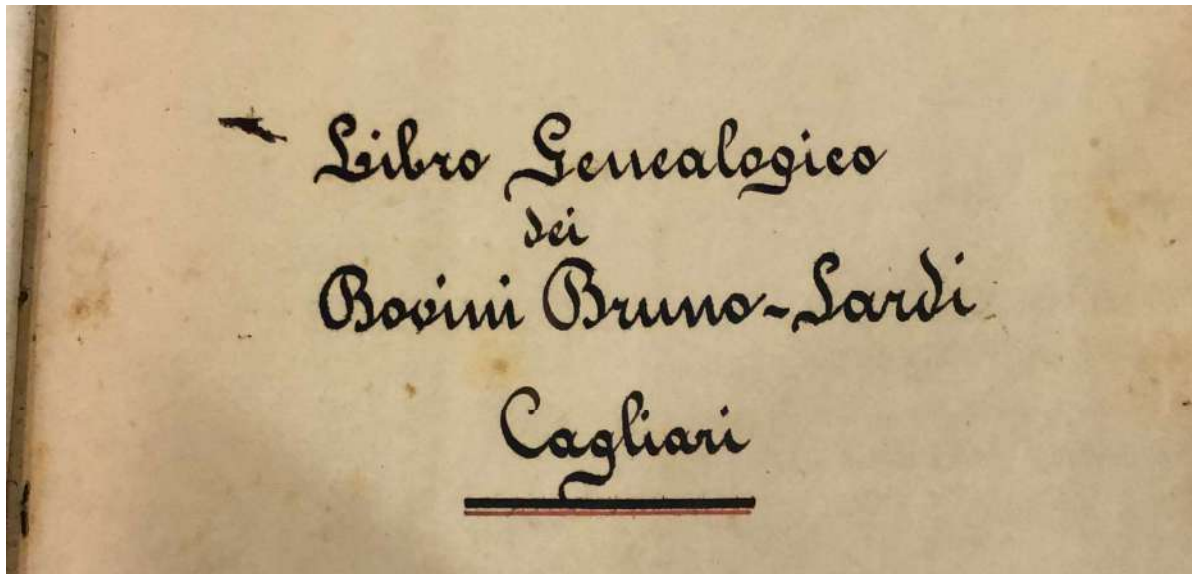 Libro Genealogico
dei
Bovini Bruno-Sardi
Cagliari